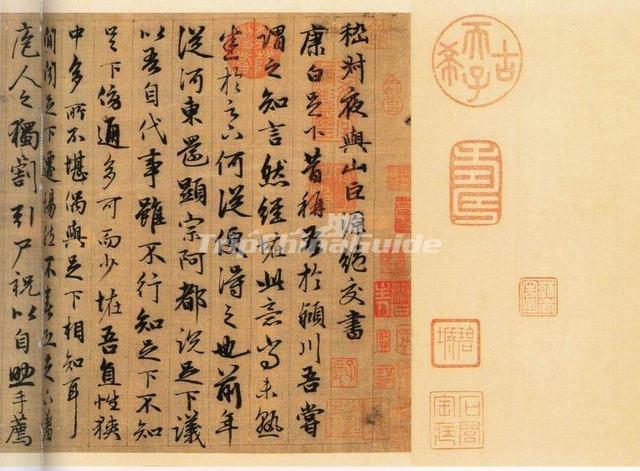 嵇叔夜與山巨源絕交書
康白足下昔稱吾於頴川吾嘗
謂之知言然經怪此意尚未熟
悉於足下何從便得之也前年
從河東還顯宗阿都說足下議
以吾自代事雖不行知足下不知
足下傍通多可而少怪吾直性狹
中多所不堪偶與足下相知耳
間聞足下遷惕然不喜恐足下羞
庖人之獨割引尸祝以自助手薦
古希天子
TripChinaGuide